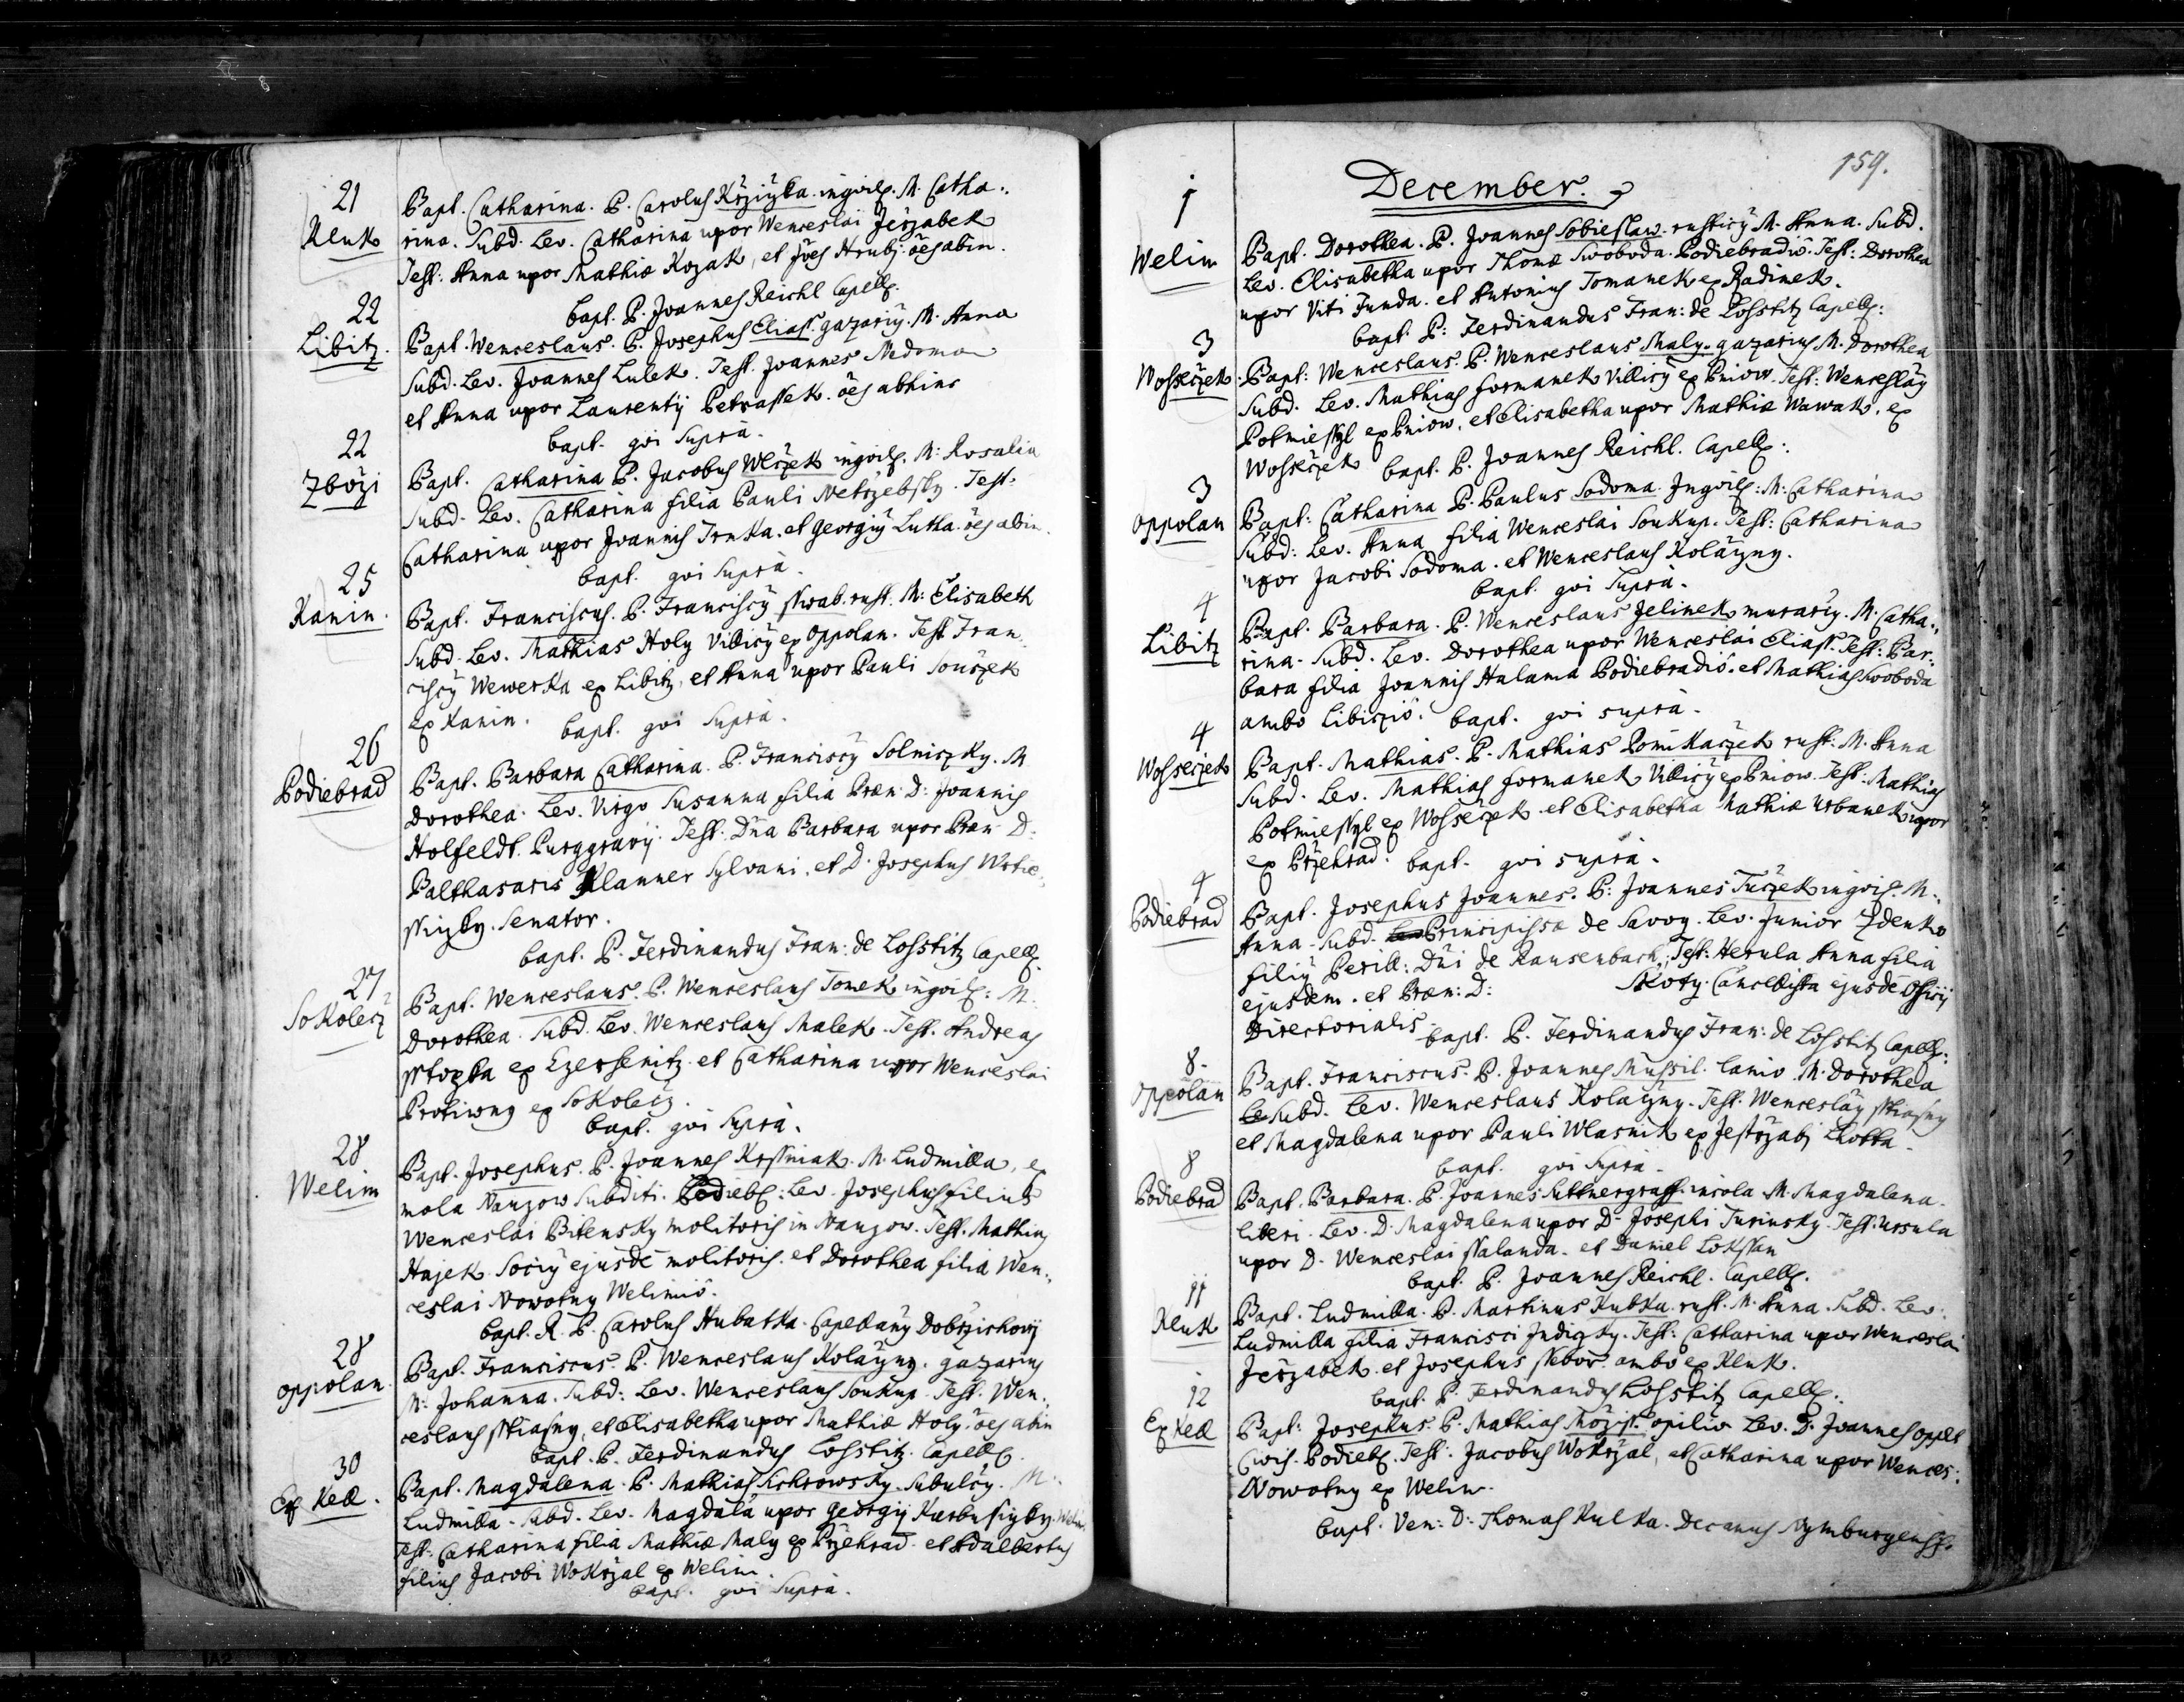 21
Kluk
Bapt. Catharina. P. Carolus Krziżka inqvil. M. Catha:
rina. Subd. Lev. Catharina uxor Wenceslai Jerżabek
Test: Anna uxor Mathiæ Kozak, et Jões Hrubj. ões abin.
bapt. P. Joannes Reichl Capell.
22
Libitz.
Bapt. Wenceslaus. P. Josephus Eliass. gazariy. M. Anna
Subd. Lev. Joannes Lulek. Test. Joannes Nedoma
et Anna uxor Laurentij Petrassek. ões abhinc
bapt. qvi Suprà.
22
Zboži
Bapt. Catharina P. Jacobus Wlczek inqvil. M: Rosalia
Subd. Lev. Catharina filia Pauli Netrzebsky. Test:
Catharina uxor Joannis Trnka. et Georgiy Lutka. ões abin.
bapt. qvi Suprà.
25
Kanin.
Bapt. Franciscus. P. Franciscy Sswab. rust. M: Elisabeth
Subd. Lev. Mathias Holy Villicy ex Oppolan. Test. Fran:
ciscy Wewerka ex Libitz, et Anna uxor Pauli Souczek
ex Kanin. bapt. qvi Suprà.
26
Podiebrad
Bapt. Barbara Catharina. P. Franciscy Solniczky. M.
Dorothea. Lev. Virgo Susanna filia Præn: D: Joannis
Holfeldt. Purggravij. Test. Dna Barbara uxor Præn: D:
Balthasaris Klanner Sylvani. et D. Josephus Wrtie:
Senator.
bapt. P. Ferdinandus Fran: de Losstitz Capell.
27
Sokolecz
Bapt. Wenceslaus. P. Wenceslaus Tomek inqvil: M.
Dorothea. Subd. Lev. Wenceslaus Malek. Test. Andreas
ex et Catharina uxor Wenceslai
Protiwny ex Sokolecz.
bapt. qvi Suprà.
28
Welim
Bapt. Josephus. P. Joannes Krssniak. M. Ludmilla, ex
mola Nauzow Subditi. Podieb: Lev. Josephus filius
Wenceslai Bitensky molitoris in Nauzow. Test. Mathias
Hajek. Sociy ejusdē molitoris. et Dorothea filia Wen:
ceslai Nowotny Welimiō.
bapt. R. P. Carolus Hubatka. Capellany Dobrzichowij
28
Oppolan
Bapt. Franciscus. P. Wenceslaus Kolaczny. gazarius
M: Johanna. Subd: Lev. Wenceslaus Soukup. Test. Wen:
ceslaus Sstiasny, et Elisabetha uxor Mathiæ Holy. ões abin
bapt. P. Ferdinandus Losstitz. Capell.
30
Ex Kel.
Bapt. Magdalena. P. Mathias Subulcy. M.
Ludmilla. Subd. Lev. Magdalā uxor Georgij Welim.
Test: Catharina filia Mathiæ Maly ex Przehrad. et Adalbertus
filius Jacobi Wokrzal ex Welim.
bapt. qvi Suprà.
159.
December.
1
Welim
Bapt. Dorothea. P. Joannes Sobieslaw. rusticy M. Anna. Subd.
Lev. Elisabetha uxor Thomæ Swoboda. Podiebradiō. Test: Dorothea
uxor Viti Funda. et Antonius Tomanek ex Radimek.
bapt. P: Ferdinandus Fran: de Losstitz Capell:
3
Wosseczek
Bapt: Wenceslaus. P. Wenceslaus Maly. gazarius M. Dorothea
Subd. Lev. Mathias formanek Villicy ex Pniow. Test: Wenceslay
Potmiessyl ex Pniow. et Elisabetha uxor Mathiæ Wawak. ex
Wosseczek bapt. P. Joannes Reichl. Capell:
3
Oppolan
Bapt: Catharina P. Paulus Sodoma. Inqvil: M: Catharina
Subd: Lev. Anna filia Wenceslai Soukup. Test: Catharina
uxor Jacobi Sodoma. et Wenceslaus Kolaczny.
bapt. qvi Suprà.
4
Libitz
Bapt. Barbara. P. Wenceslaus Jelinek murariy. M. Catha:
rina. Subd. Lev. Dorothea uxor Wenceslai Eliass. Test: Bar:
bara filia Joannis Halama Podiebradiō. et Mathias Swoboda
ambo Libicziō. bapt. qvi suprà.
4
Wosseczek
Bapt. Mathias. P. Mathias rust. M. Anna
Subd. Lev. Mathias formanek Villicy ex Pniow. Test: Mathias
Potmiessyl ex Wosseczek et Elisabetha Mathiæ Urbanek uxor
ex Przehrad. bapt. qvi suprà.
4
Podiebrad
Bapt. Josephus Joannes. P: Joannes Turzek inqvil. M:
Anna. Subd. Principissæ de Savoy. Lev. Junior Zdenko
filiy Perill: Dni de Rausenbach, Test: Herula Anna filia
ejusdem. et Præn: D: Skoty. Cancellista ejusdē Officij
Directorialis bapt. P. Ferdinandus Fran: de Losstitz Capell:
8.
Oppolan
Bapt. Franciscus. P. Joannes Mussil. lanio. M. Dorothea
Subd. Lev. Wenceslaus Kolaczny. Test. Wenceslay Sstiasny
et Magdalena uxor Pauli Wlasnik ex Jestrzabj Lhotta.
bapt. qvi Suprà.
8
Podiebrad
Bapt. Barbara. P. Joannes incola M. Magdalena.
liberi. Lev. D. Magdalena uxor D. Josephi Turinsky. Test. Ursula
uxor D. Wenceslai ssalanda. et Daniel Lokssan
bapt. P. Joannes Reichl. Capell.
11
Kluk
Bapt. Ludmilla. P. Martinus Kubka. rust. M. Anna. Subd. Lev.
Ludmilla filia Francisci Test: Catharina uxor Wenceslai
Jerzabek. et Josephus ssebor. ambo ex Kluk.
bapt. P. Ferdinandus Losstitz Capell.
12
Ex Kel
Bapt: Josephus. P. Mathias opilio Lev. D. Joannes Opplt
Civis. Podieb. Test: Jacobus Wokrzal, et Catharina uxor Wences:
Nowotny ex Welim.
bapt. Ven: D: Thomas Kulka. Decanus Nymburgenss.